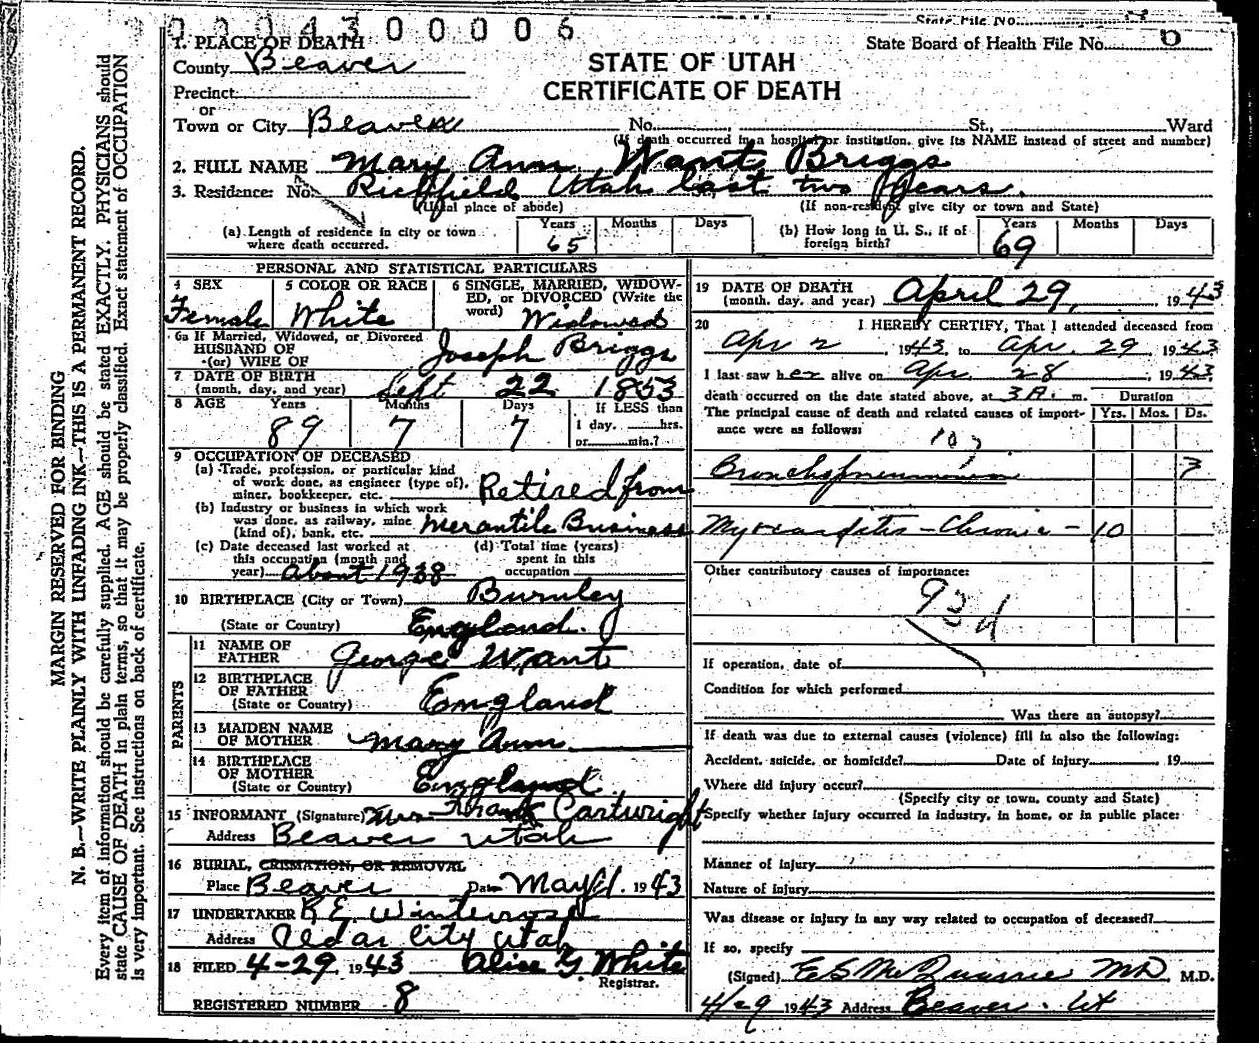 0 0 0 4 3 0 0 0 0 6
State File No.
1. PLACE OF DEATH
State Board of Health File No. 6
County Beaver
STATE OF UTAH
Precinct
CERTIFICATE OF DEATH
or
Town or City Beaver No. , St., Ward
(If death occurred in a hospital or institution, give its NAME instead of street and number)
2. FULL NAME Mary Ann Want Briggs
3. Residence: No. Richfield Utah last two years.
(Usual place of abode) (If non-resident give city or town and State)
(a) Length of residence in city or town where death occurred. Years 65 Months Days
(b) How long in U. S., if of foreign birth? Years 69 Months Days
PERSONAL AND STATISTICAL PARTICULARS
4 SEX Female
5 COLOR OR RACE White
6 SINGLE, MARRIED, WIDOW-
ED, or DIVORCED (Write the
word) Widowed
6a If Married, Widowed, or Divorced
HUSBAND OF
(or) WIFE OF Joseph Briggs
7 DATE OF BIRTH
(month, day, and year) Sept 22 1853
8 AGE Years 89 Months 7 Days 7 If LESS than
1 day. hrs.
or min.?
9 OCCUPATION OF DECEASED
(a) Trade, profession, or particular kind
of work done, as engineer (type of),
miner, bookkeeper, etc. Retired from
(b) Industry or business in which work
was done, as railway, mine
(kind of), bank, etc. Merantile Business
(c) Date deceased last worked at
this occupation (month and
year) about 1938
(d) Total time (years)
spent in this
occupation
10 BIRTHPLACE (City or Town) Burnley
(State or Country) England.
PARENTS
11 NAME OF
FATHER George Want
12 BIRTHPLACE
OF FATHER
(State or Country) England
13 MAIDEN NAME
OF MOTHER Mary Ann
14 BIRTHPLACE
OF MOTHER
(State or Country) England
15 INFORMANT (Signature) Mrs Frank Cartwright
Address Beaver Utah
16 BURIAL, CREMATION, OR REMOVAL
Place Beaver Date May 1. 1943
17 UNDERTAKER R.E. Winterrose
Address Cedar City Utah
18 FILED 4-29, 1943 Alice G. White
Registrar.
REGISTERED NUMBER 8
19 DATE OF DEATH
(month, day, and year) April 29, 1943
20 I HEREBY CERTIFY, That I attended deceased from
Apr 2, 1943, to Apr. 29 1943
I last saw her alive on Apr 28, 1943.
death occurred on the date stated above, at 3 A. m. Duration
The principal cause of death and related causes of import-
ance were as follows: Yrs. Mos. Ds.
107
Bronchopneumonia 7
Myocarditis - Chronic - 10
Other contributory causes of importance:
93d
If operation, date of
Condition for which performed
Was there an autopsy?
If death was due to external causes (violence) fill in also the following:
Accident, suicide, or homicide? Date of injury , 19
Where did injury occur?
(Specify city or town, county and State)
Specify whether injury occurred in industry, in home, or in public place:
Manner of injury
Nature of injury
Was disease or injury in any way related to occupation of deceased?
If so, specify
(Signed) M.D. M.D.
4/29 1943 Address Beaver. Ut
MARGIN RESERVED FOR BINDING
N. B.—WRITE PLAINLY WITH UNFADING INK—THIS IS A PERMANENT RECORD.
Every item of information should be carefully supplied. AGE should be stated EXACTLY. PHYSICIANS should
state CAUSE OF DEATH in plain terms, so that it may be properly classified. Exact statement of OCCUPATION
is very important. See instructions on back of certificate.